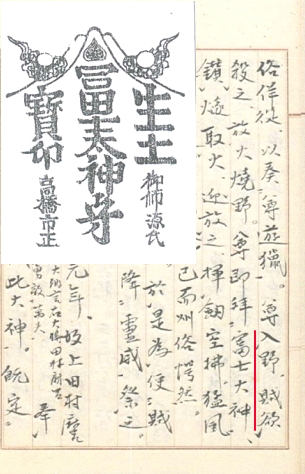 俗佯従以奏尊遊獵。尊入野賊欲
殺之放火燒野。尊即拜富士大神
鑽燧取火迎放之揮劔空拂猛風
已而州俗愕然
於是為使賊
降靈威祭之
元年坂上田村麿
奉
此大神。既定。
御師源氏
太神
寶印
高橋市正